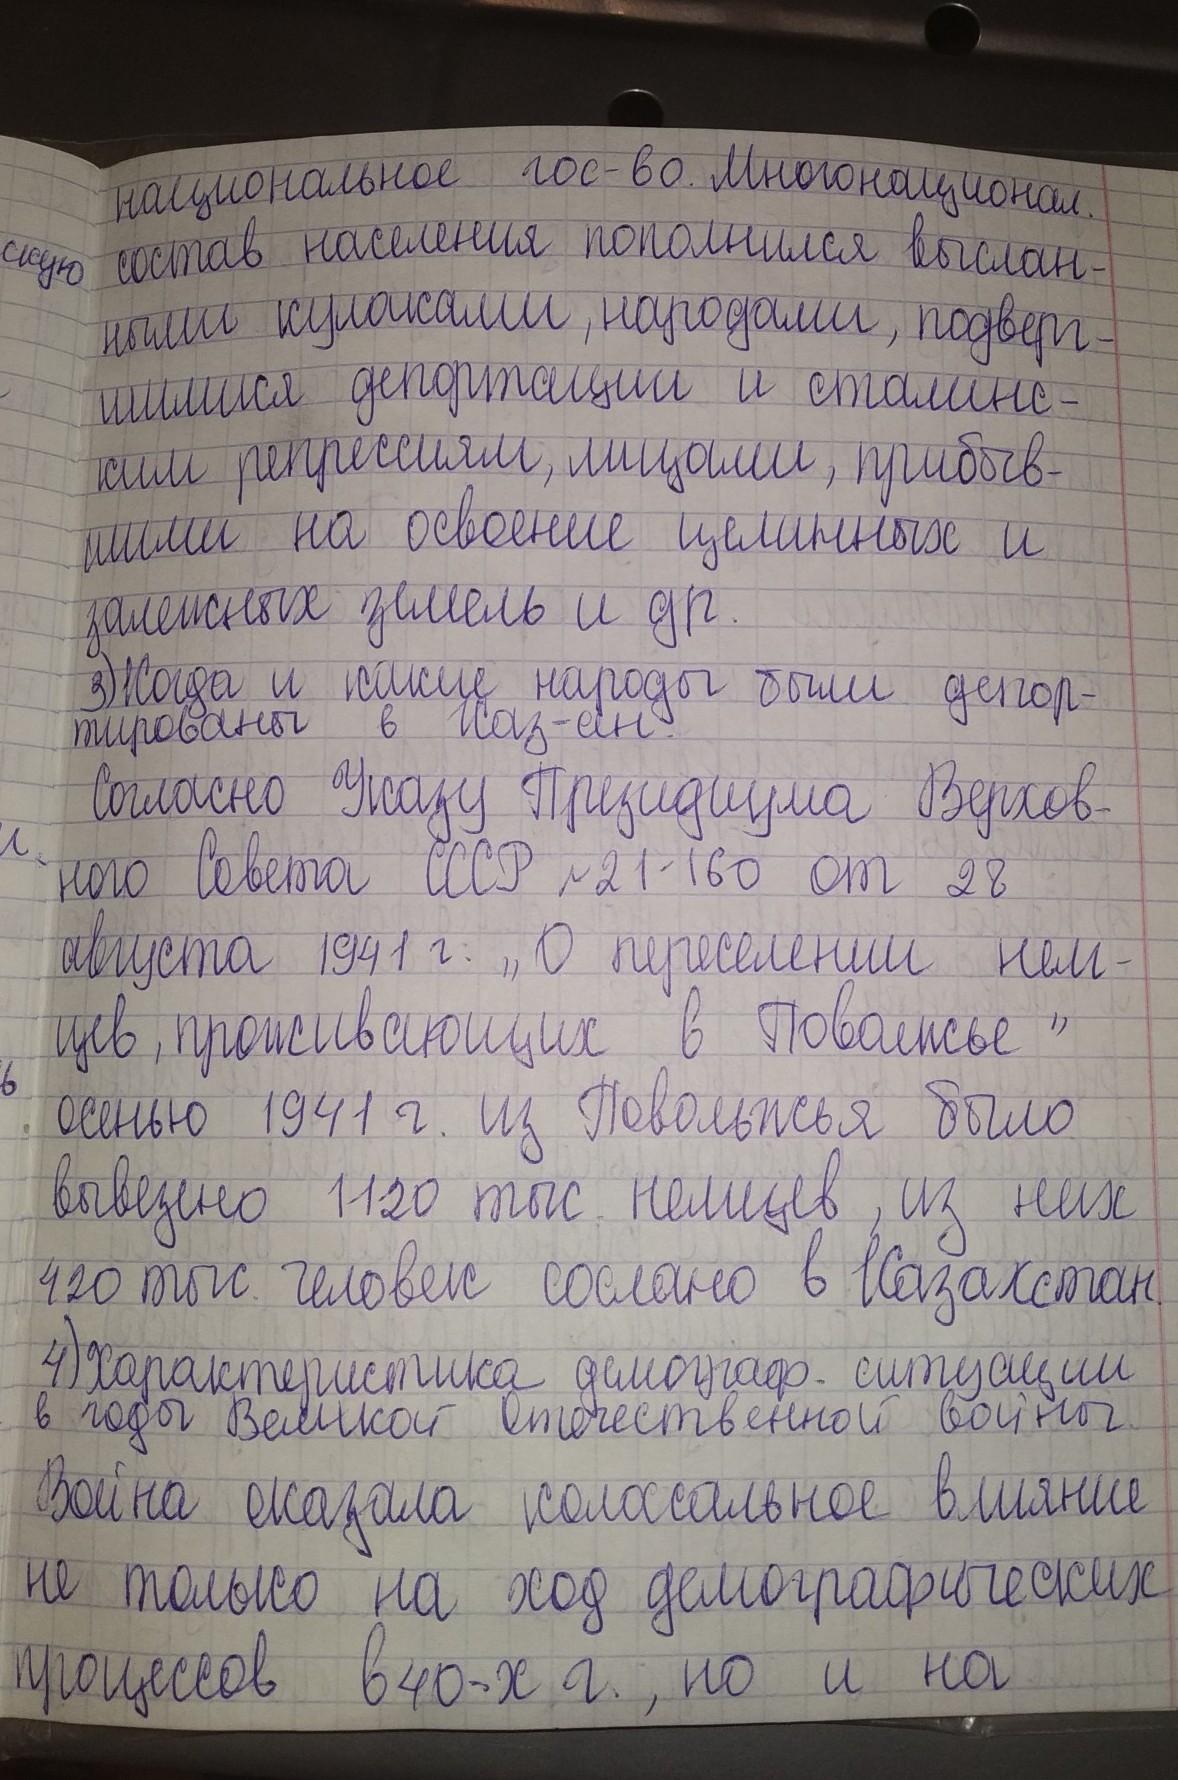 национальное гос-во. Многонационал.
скую состав населения пополнился выслан-
ными кулаками, народами, подверг-
шимися депортации и сталинс-
ким репрессиям, лицами, прибыв-
шими на освоение целинных и
залежных земель и др.
3) Когда и какие народы были депор-
тированы в Каз-ан.
Согласно Указу Президиума Верхов-
ного Совета СССР №21-160 от 28
августа 1941 г. „О переселении нем-
цев, проживающих в Поволжье”
осенью 1941 г. из Поволжья было
вывезено 1120 тыс. немцев, из них
420 тыс. человек сослано в Казахстан.
4) Характеристика демограф. ситуации
в годы Великой Отечественной войны.
Война оказала колоссальное влияние
не только на ход демографических
процессов в 40-х г., но и на